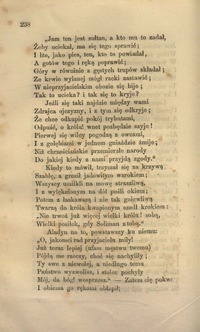 238
„Jam ten jest sołtan, a kto mu to zadał,
Żeby uciekał, ma się tego sprawić;
I łże, jako pies, ten, kto to powiadał,
A gotów tego i ręką poprawić;
Góry w równinie z gęstych trupów składał;
Ze krwie wylanej mógł rzeki zastawić;
W nieprzyjacielskim obozie się bijo;
Tak to ucieka? i tak się to kryje?
Jeśli się taki najdzie między wami
Zdrajca ojczyzny, i z tym się odkryje;
Że chce odkupić pokój trybutami,
Odpuść, o królu! wnet pozbędzie szyje!
Pierwej się wilcy pogodzą z owcami,
I z gołębiami w jednem gniaździe żmije;
Niż chrześciańskie przemierzłe narody
Do jakiej kiedy z nami przyjdą zgody.“
Kiedy to mówił, trzymał się na krzywej
Szablę, a groził jadowitym warokiem;
Wszyscy umilkli na mowę straszliwą,
I z wylękniona na dół poszli okiem;
Potem z łaskawszą i nie tak gniewliwą
Twarzą do króla kwapionym szedł krokiem:
„Nie trwoż już więcej wielki królu! sobą,
Wielki posiłek, gdy Soliman z tobą.“
Aladyn na to, powstawszy ku niemu:
„O, jakomci rad przyjacielu miły!
Już teraz lepiej (ufam męstwu twemu)
Pójdą me rzeczy, choć się nachyliły;
Ty swe z niewoli, a niedługo temu
Państwo wyzwolisz, i stolec pochyły
Mój, da bóg! wesprzesz.“ — Zatem się pokwa
I obiema go rękoma obłapił;